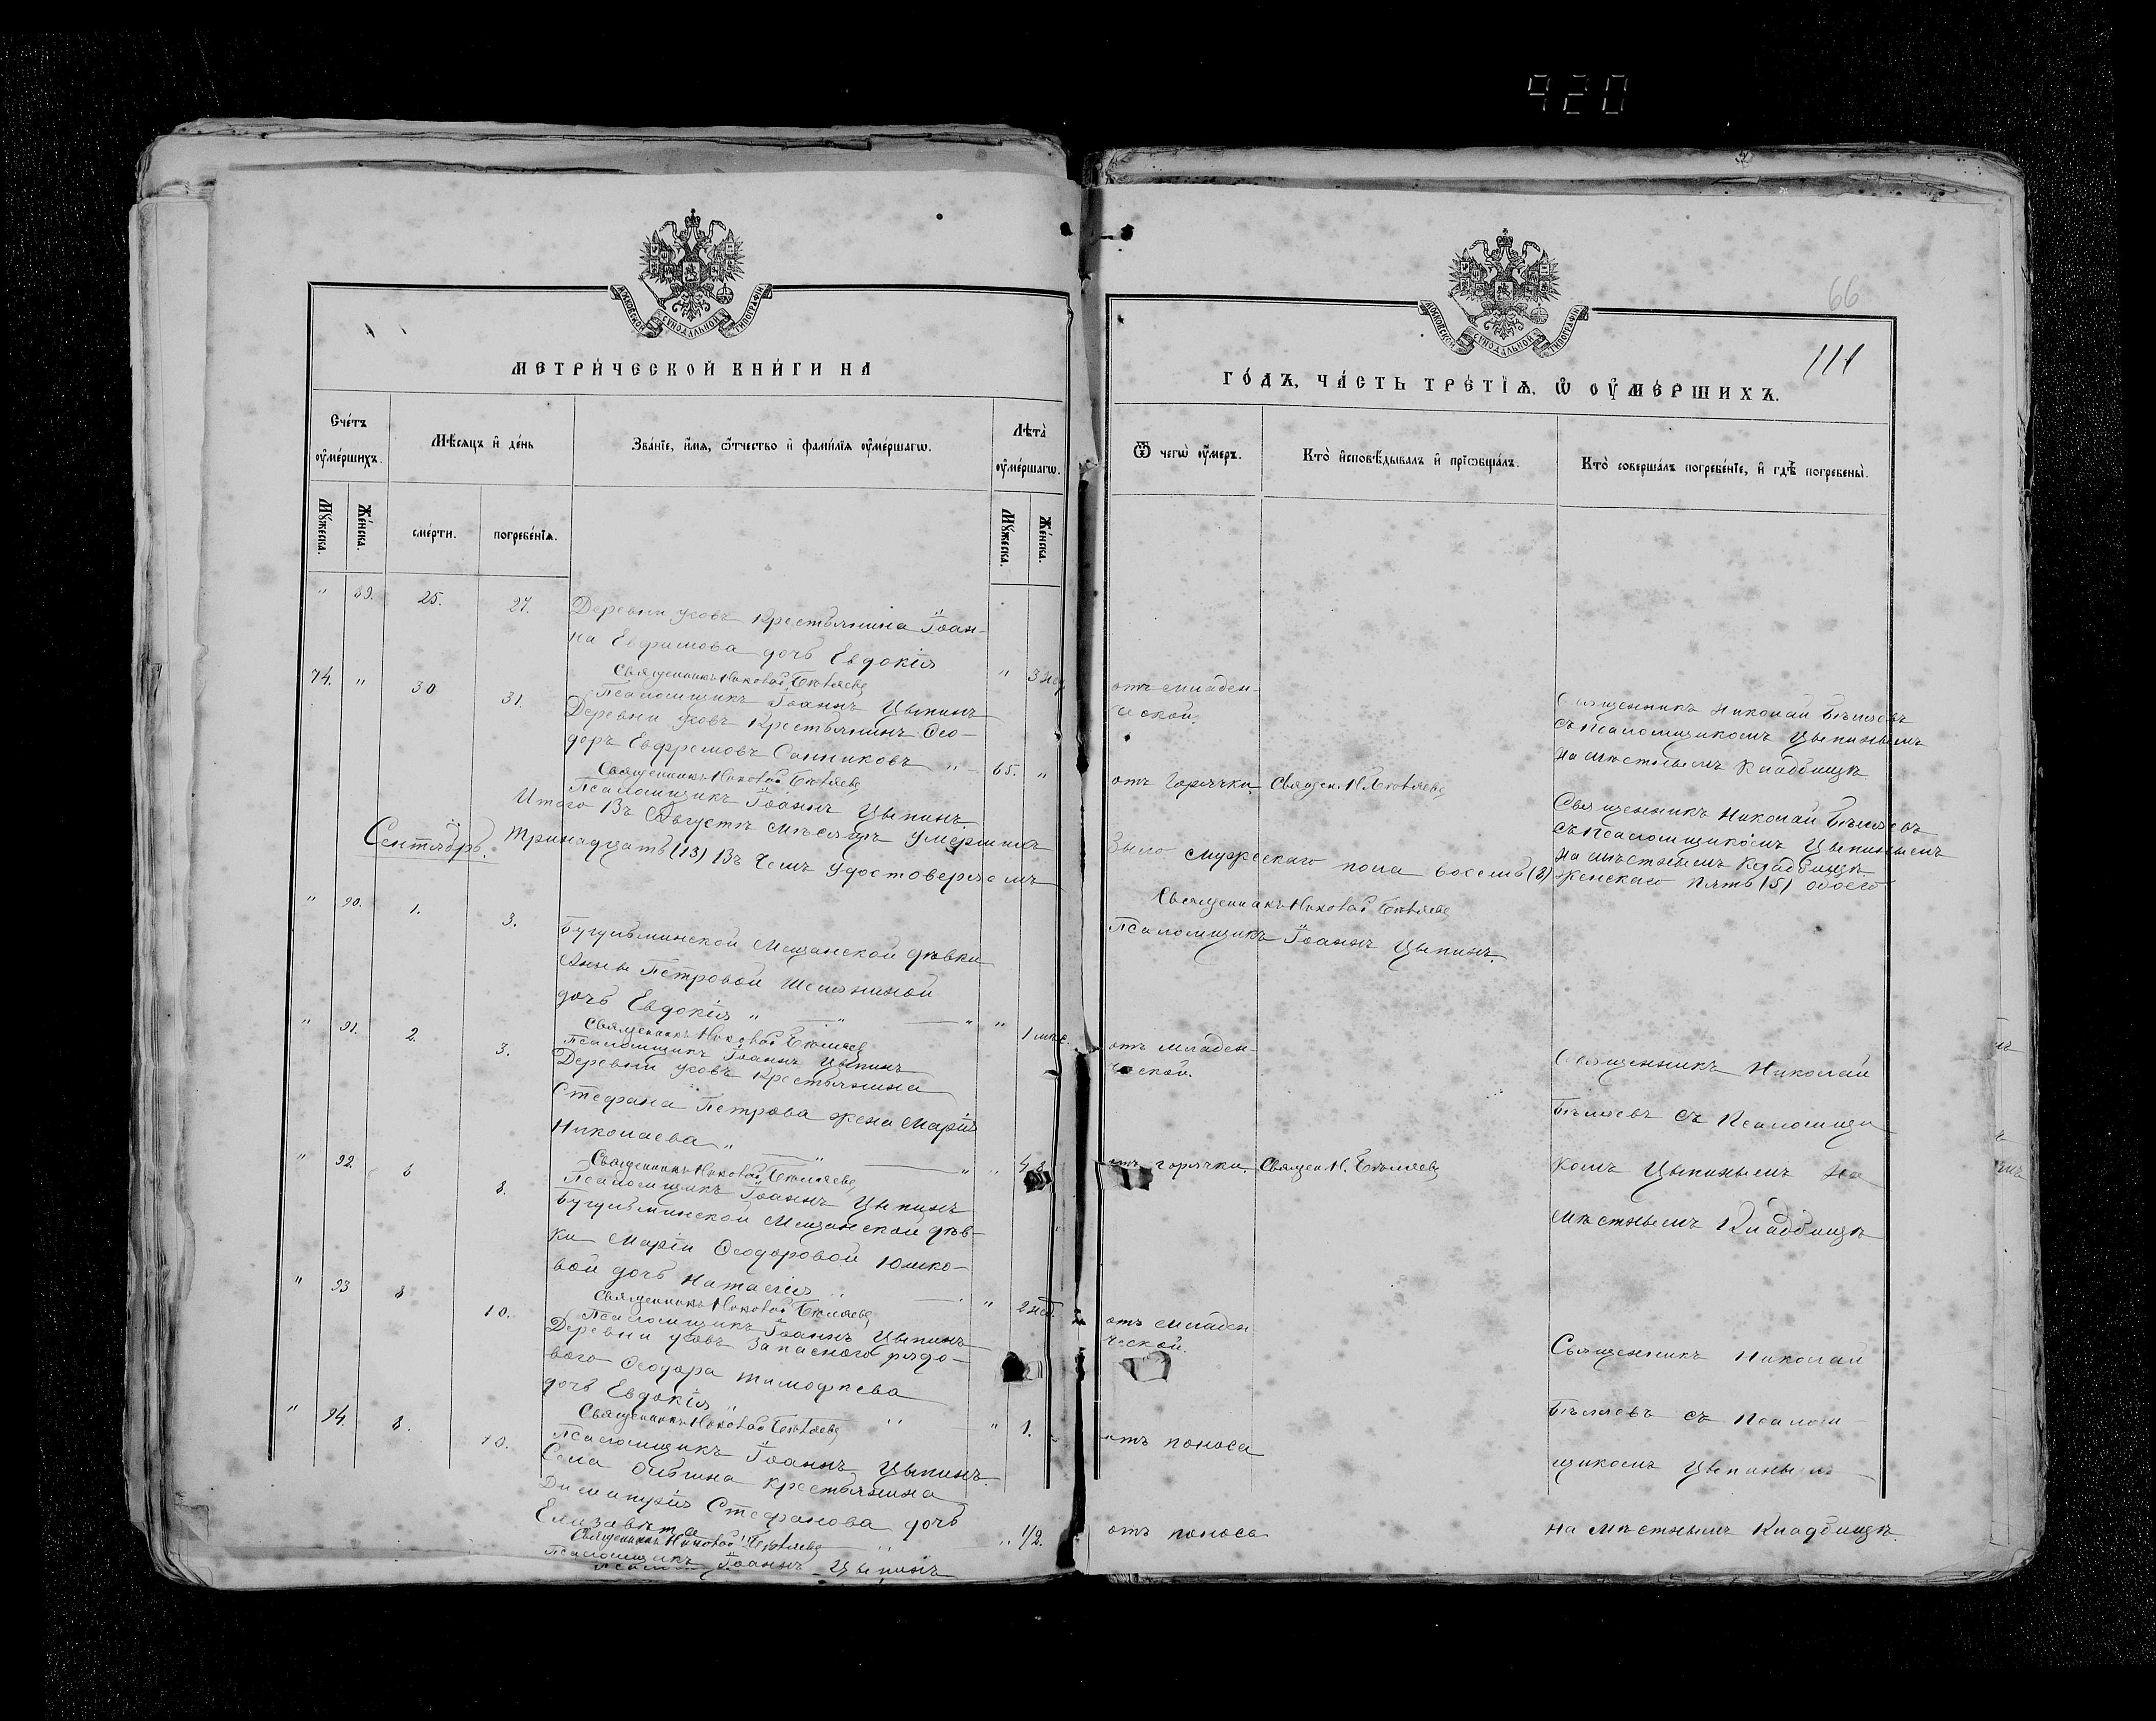 920
66
111
МОСКОВСКОЙ СѴНОДАЛЬНОЙ ТИПОГРАФІИ
МЕТРИ́ЧЕСКОЙ КНИ́ГИ НА
Сче́тъ ᲂу҆ме́ршихъ.
Мѣ́сяцъ и҆ де́нь
Зва́нїе, и҆́мя, ѻ҆́тчество и҆ фами́лїя ᲂу҆ме́ршагѡ.
Лѣта̀ ᲂу҆ме́ршагѡ.
Му́жеска.
Же́нска.
сме́рти.
погребе́нїѧ.
Му́жеска.
Же́нска.
" 89. 25. 27. Деревни Усовъ Крестьянина Іоан-
на Евфимова дочь Евдокія " 3 нед.
Священникъ Николай Бѣляевъ
Псаломщикъ Іоаннъ Цыпинъ
74. " 30 31. Деревни Усовъ Крестьянинъ Ѳео-
доръ Евфремовъ Санниковъ " 65. "
Священникъ Николай Бѣляевъ
Псаломщикъ Іоаннъ Цыпинъ
Итого Въ Августѣ мѣсяцѣ Умершихъ
Сентябрь. Тринадцать (13) Въ Чемъ Удостоверяемъ
" 90. 1. 3. Бугульминской Мещанской дѣвки
Анны Петровой
дочь Евдокія " " " " 1 мѣс.
Священникъ Николай Бѣляевъ
Псаломщикъ Іоаннъ Цыпинъ
" 91. 2. 3. Деревни Усовъ Крестьянина
Стефана Петрова жена Марія
Николаева " " " "
Священникъ Николай Бѣляевъ
Псаломщикъ Іоаннъ Цыпинъ
" 92. 6 8. Бугульминской Мещанской дѣв-
ки Маріи Ѳеодоровой Юшко-
вой дочь Наталія " " 2 нед.
Священникъ Николай Бѣляевъ
Псаломщикъ Іоаннъ Цыпинъ
" 93 8 10. Деревни Усовъ Запаснаго рядо-
ваго Ѳеодора Тимофѣева
дочь Евдокія " " " 1.
Священникъ Николай Бѣляевъ
Псаломщикъ Іоаннъ Цыпинъ
" 94. 8. 10. Села Крестьянина
Димитрія Стефанова дочь
Елизавета " " 1/2.
Священникъ Николай Бѣляевъ
Псаломщикъ Іоаннъ Цыпинъ
МОСКОВСКОЙ СѴНОДАЛЬНОЙ ТИПОГРАФІИ
ГО́ДЪ, ЧА́СТЬ ТРЕ́ТЇѦ, Ѡ҆ ОУ҆МЕ́РШИХЪ.
Ѿ чегѡ̀ ᲂу҆́меръ.
Кто̀ и҆сповѣ́дывалъ и҆ прїѡбща́лъ.
Кто̀ соверша́лъ погребе́нїе, и҆ гдѣ̀ погребены̀.
отъ младен-
ческой.
Священникъ Николай Бѣляевъ
съ псаломщикомъ Цыпинымъ
на мѣстномъ Кладбищѣ
отъ горячки Священ. Н. Бѣляевъ
Священникъ Николай Бѣляевъ
съ псаломщикомъ Цыпинымъ
на мѣстномъ Кладбищѣ
Было мужескаго пола восемь (8) женскаго пять (5) обоего
Священникъ Николай Бѣляевъ
Псаломщикъ Іоаннъ Цыпинъ.
отъ младен-
ческой.
Священникъ Николай
Бѣляевъ съ Псаломщи
отъ горячки. Священ Н. Бѣляевъ
комъ Цыпинымъ На
Мѣстномъ Кладбищѣ
отъ младен
ческой.
Священникъ Николай
Бѣляевъ съ Псалом-
отъ поноса
щикомъ Цыпинымъ
отъ поноса
на Мѣстномъ Кладбищѣ.